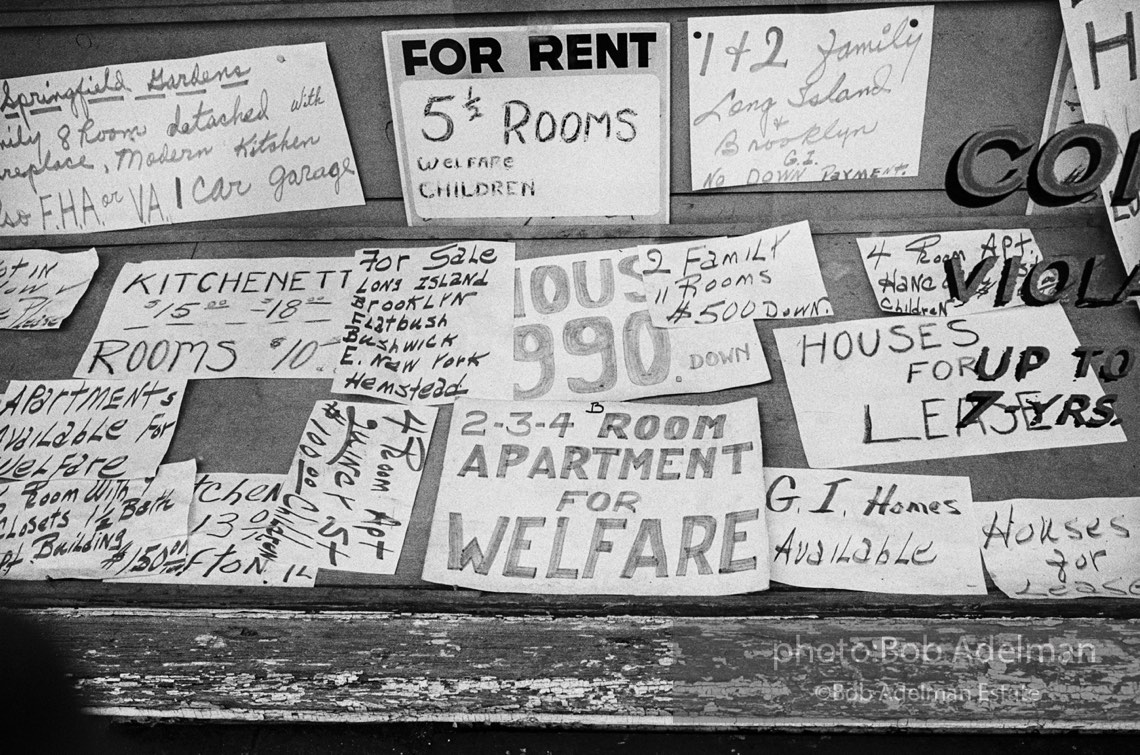 Springfield Gardens
8 Room detached with
Modern Kitshen
F.H.A. or V.A. 1 Car garage
FOR RENT
5 ½ ROOMS
WELFARE
CHILDREN
1 & 2 Family
Long Island
&
Brooklyn
G.I.
NO DOWN PAYMENT.
KITCHENETT
$15.00 $18.00
ROOMS $10.
For Sale
LONG ISLAND
BROOKLYN
Flatbush
Bushwick
E. New York
Hemstead
HOUS
990.
DOWN
2 FAMILY
11 Rooms
$500 Down.
4 Room Apt.
Children
VIOLA
UP TO
7 YRS.
HOUSES
FOR
LEASE
APARTMENTS
Available For
Welfare
Room With
Closets 1½ Bath
Building
$150.00
4 Room Apt
Quincy St
$100.00 Children
2-3-4 ROOM
APARTMENT
FOR
WELFARE
G.I. Homes
Available
Houses
for
Lease
photo:Bob Adelman
©Bob Adelman Estate